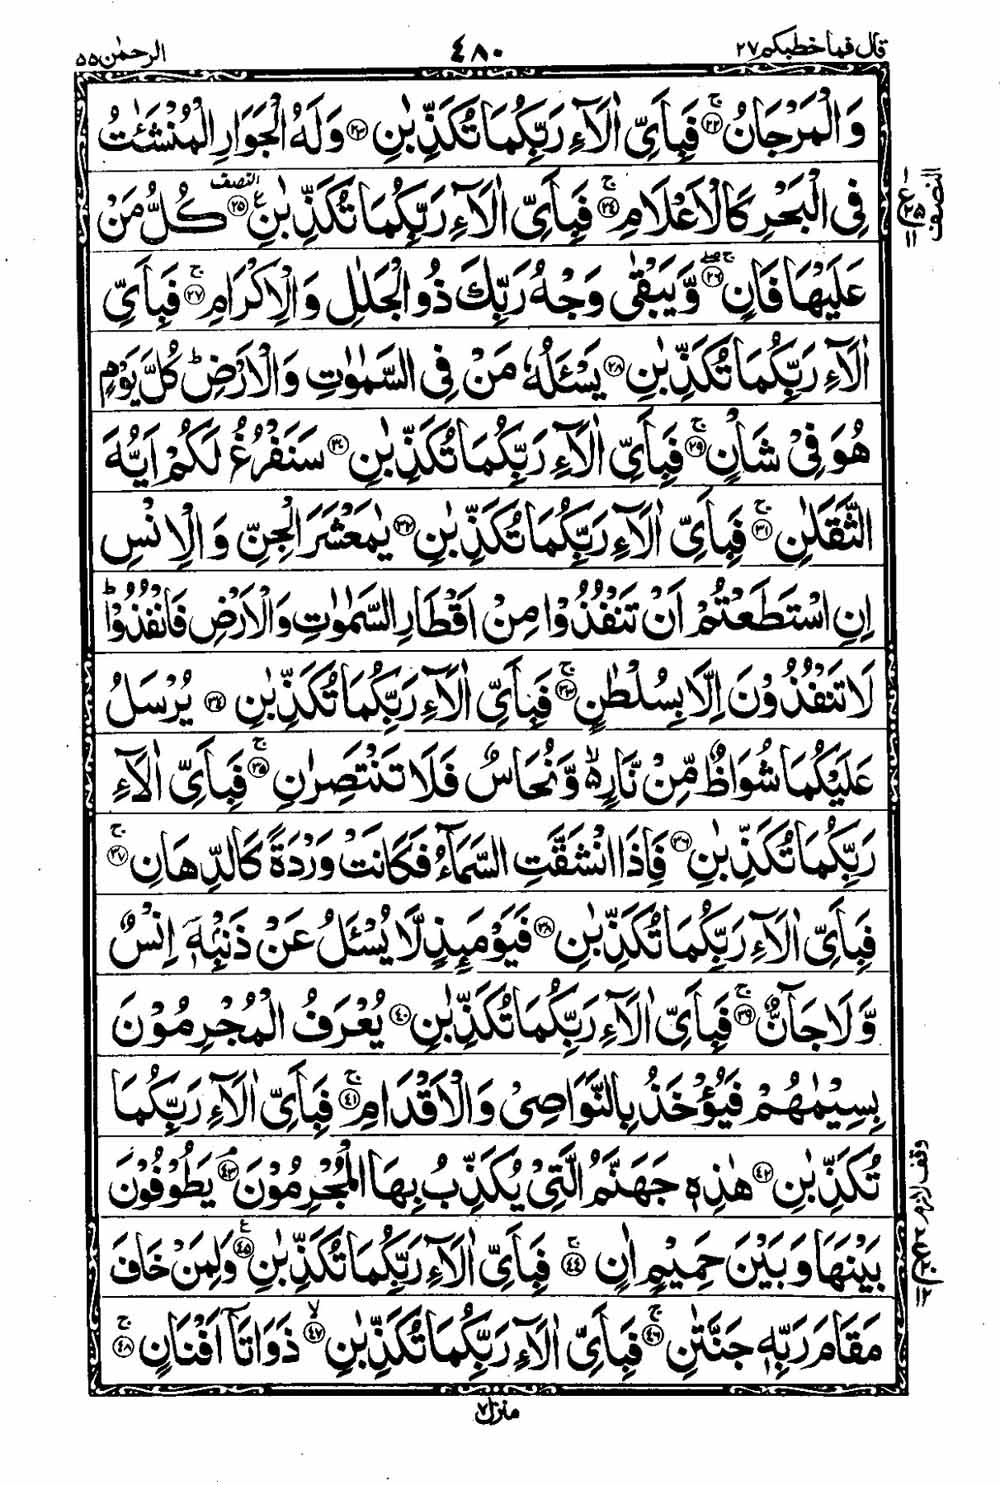 قال فما خطبكم ٢٧
٤٨٠
الرحمٰن ٥٥
وَالْمَرْجَانُ ۚ‏﴿٢٢﴾ فَبِاَىِّ اٰلَآءِ رَبِّكُمَا تُكَذِّبٰنِ ﴿٢٣﴾ وَلَهُ الْجَوَارِ الْمُنْشَئٰتُ
فِى الْبَحْرِ كَالْاَعْلَامِ ۚ﴿٢٤﴾ فَبِاَىِّ اٰلَآءِ رَبِّكُمَا تُكَذِّبٰنِ ع النصف ﴿٢٥﴾ كُلُّ مَنْ
عَلَيْهَا فَانٍ ۚۖ﴿٢٦﴾ وَّيَبْقٰى وَجْهُ رَبِّكَ ذُو الْجَلٰلِ وَالْاِكْرَامِ ۚ﴿٢٧﴾ فَبِاَىِّ
اٰلَآءِ رَبِّكُمَا تُكَذِّبٰنِ ﴿٢٨﴾ يَسْئَلُهٗ مَنْ فِى السَّمٰوٰتِ وَالْاَرْضِ ؕ كُلَّ يَوْمٍ
هُوَ فِىْ شَاْنٍ ۚ﴿٢٩﴾ فَبِاَىِّ اٰلَآءِ رَبِّكُمَا تُكَذِّبٰنِ ﴿٣٠﴾ سَنَفْرُغُ لَكُمْ اَيُّهَ
الثَّقَلٰنِ ۚ﴿٣١﴾ فَبِاَىِّ اٰلَآءِ رَبِّكُمَا تُكَذِّبٰنِ ﴿٣٢﴾ يٰمَعْشَرَ الْجِنِّ وَالْاِنْسِ
اِنِ اسْتَطَعْتُمْ اَنْ تَنْفُذُوْا مِنْ اَقْطَارِ السَّمٰوٰتِ وَالْاَرْضِ فَانْفُذُوْا ؕ
لَا تَنْفُذُوْنَ اِلَّا بِسُلْطٰنٍ ۚ﴿٣٣﴾ فَبِاَىِّ اٰلَآءِ رَبِّكُمَا تُكَذِّبٰنِ ﴿٣٤﴾ يُرْسَلُ
عَلَيْكُمَا شُوَاظٌ مِّنْ نَّارٍ ۙ۬ وَّنُحَاسٌ فَلَا تَنْتَصِرٰنِ ۚ﴿٣٥﴾ فَبِاَىِّ اٰلَآءِ
رَبِّكُمَا تُكَذِّبٰنِ ﴿٣٦﴾ فَاِذَا انْشَقَّتِ السَّمَآءُ فَكَانَتْ وَرْدَةً كَالدِّهَانِ ۚ﴿٣٧﴾
فَبِاَىِّ اٰلَآءِ رَبِّكُمَا تُكَذِّبٰنِ ﴿٣٨﴾ فَيَوْمَئِذٍ لَّا يُسْئَلُ عَنْ ذَنْۢبِهٖٓ اِنْسٌ
وَّلَا جَآنٌّ ۚ﴿٣٩﴾ فَبِاَىِّ اٰلَآءِ رَبِّكُمَا تُكَذِّبٰنِ ﴿٤٠﴾ يُعْرَفُ الْمُجْرِمُوْنَ
بِسِيْمٰهُمْ فَيُؤْخَذُ بِالنَّوَاصِىْ وَالْاَقْدَامِ ۚ﴿٤١﴾ فَبِاَىِّ اٰلَآءِ رَبِّكُمَا
تُكَذِّبٰنِ ﴿٤٢﴾ هٰذِهٖ جَهَنَّمُ الَّتِىْ يُكَذِّبُ بِهَا الْمُجْرِمُوْنَ ۘ﴿٤٣﴾ يَطُوْفُوْنَ
بَيْنَهَا وَبَيْنَ حَمِيْمٍ اٰنٍ ۚ﴿٤٤﴾ فَبِاَىِّ اٰلَآءِ رَبِّكُمَا تُكَذِّبٰنِ ع ﴿٤٥﴾ وَلِمَنْ خَافَ
مَقَامَ رَبِّهٖ جَنَّتٰنِ ۚ﴿٤٦﴾ فَبِاَىِّ اٰلَآءِ رَبِّكُمَا تُكَذِّبٰنِ ۙ﴿٤٧﴾ ذَوَاتَآ اَفْنَانٍ ۚ﴿٤٨﴾
النصف
١
ع
٢٥
١١
وقف لازم
ع
١٢
منزل ٧